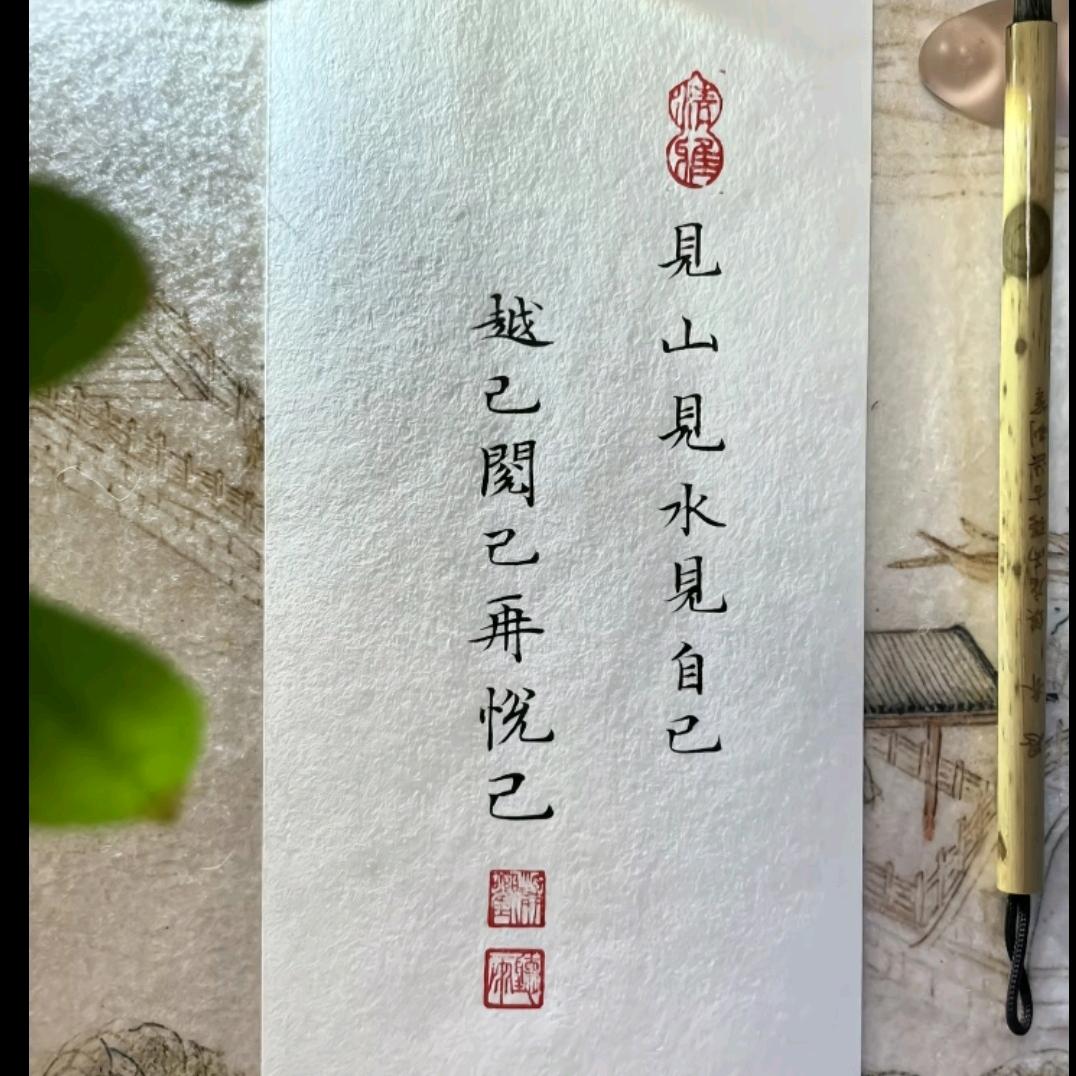 見山見水見自己
越己閱己再悅己
清雅